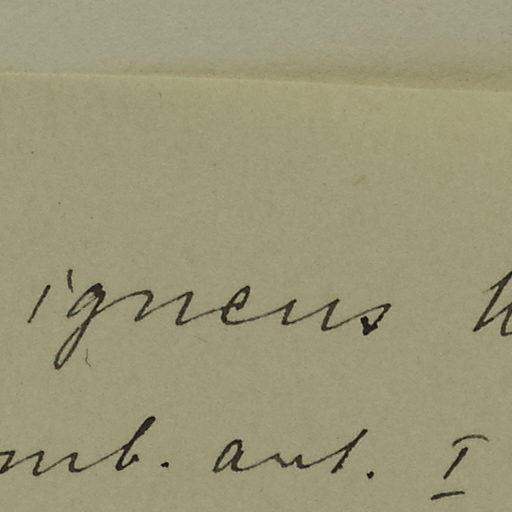 igneus
mb. ant. I